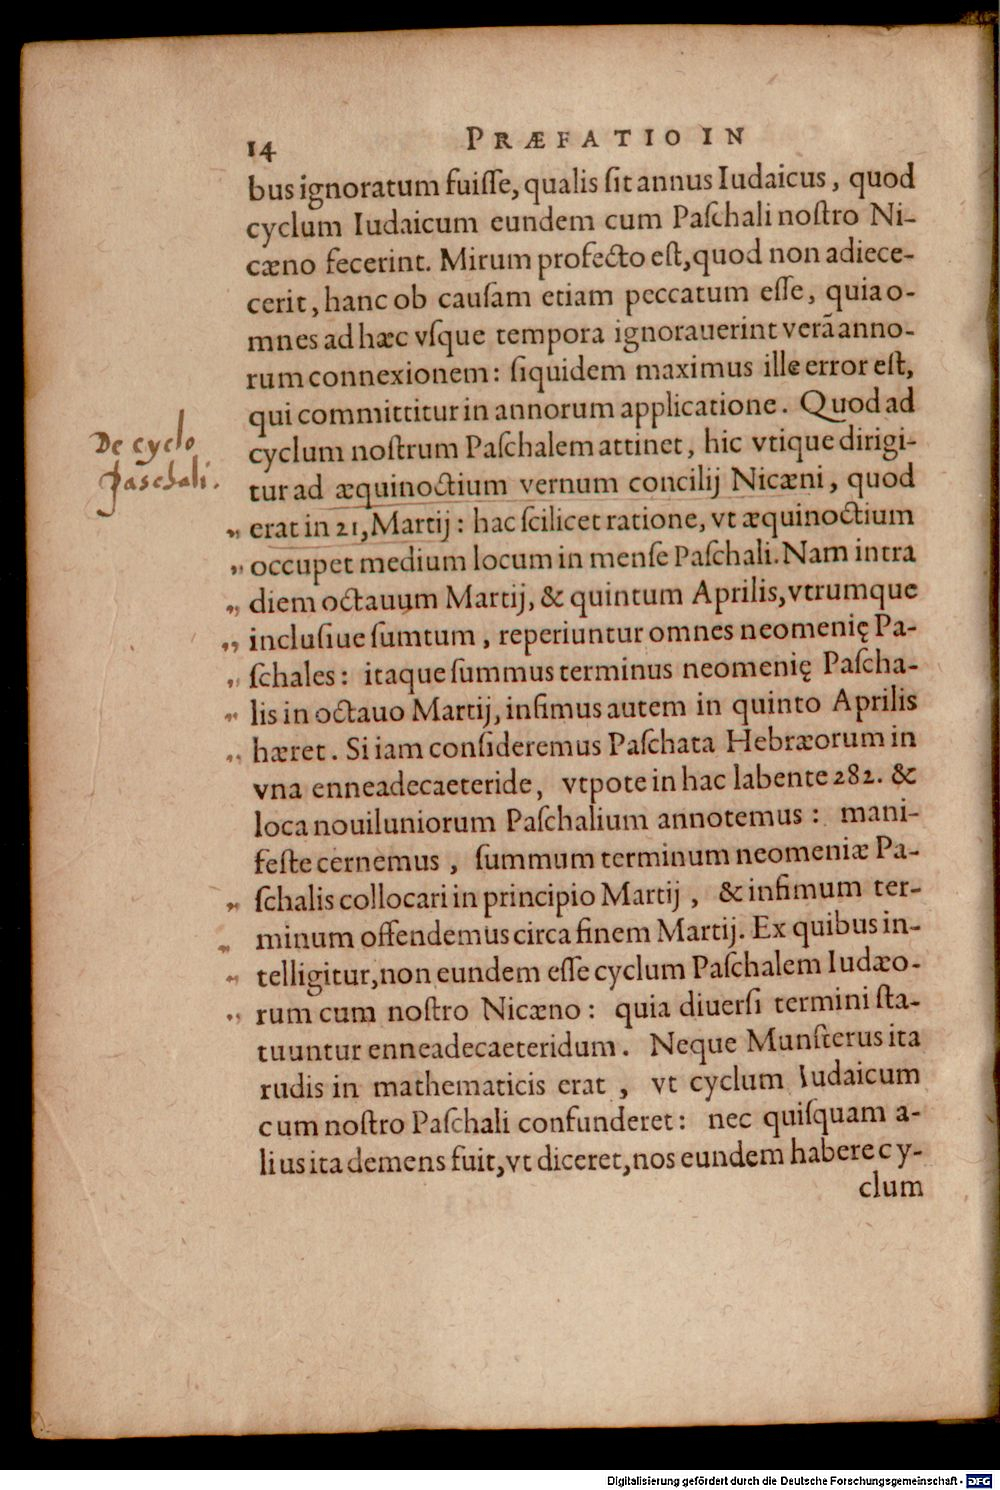 14 PRÆFATIO IN
bus ignoratum fuiſſe, qualis ſit annus Iudaicus, quod
cyclum Iudaicum eundem cum Paſchali noſtro Ni-
cæno fecerint. Mirum profecto eſt, quod non adiece-
cerit, hanc ob cauſam etiam peccatum eſſe, quia o-
mnes ad hæc vſque tempora ignorauerint verã anno-
rum connexionem: ſiquidem maximus ille error eſt,
qui committitur in annorum applicatione. Quod ad
cyclum noſtrum Paſchalem attinet, hic vtique dirigi-
De cyclo
Paschali.
tur ad æquinoctium vernum concilij Nicæni, quod
„ erat in 21, Martij: hac ſcilicet ratione, vt æquinoctium
„ occupet medium locum in menſe Paſchali. Nam intra
„ diem octauum Martij, & quintum Aprilis, vtrumque
„ incluſiue ſumtum, reperiuntur omnes neomenię Pa-
„ ſchales: itaque ſummus terminus neomenię Paſcha-
„ lis in octauo Martij, infimus autem in quinto Aprilis
„ hæret. Si iam conſideremus Paſchata Hebræorum in
vna enneadecaeteride, vtpote in hac labente 282. &
loca nouiluniorum Paſchalium annotemus: mani-
feſte cernemus, ſummum terminum neomeniæ Pa-
„ ſchalis collocari in principio Martij, & infimum ter-
„ minum offendemus circa finem Martij. Ex quibus in-
„ telligitur, non eundem eſſe cyclum Paſchalem Iudæo-
„ rum cum noſtro Nicæno: quia diuerſi termini ſta-
tuuntur enneadecaeteridum. Neque Munſterus ita
rudis in mathematicis erat, vt cyclum Iudaicum
cum noſtro Paſchali confunderet: nec quiſquam a-
lius ita demens fuit, vt diceret, nos eundem habere cy-
clum
Digitalisierung gefördert durch die Deutsche Forschungsgemeinschaft - DFG